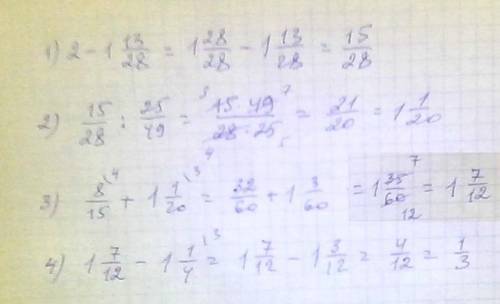 1) 2 - 1 13/28 = 1 28/28 - 1 13/28 = 15/28
2) 15/28 : 25/49 = 3 15 · 49 7 / 4 28 · 25 5 = 21/20 = 1 1/20
3) 8/15 \4 + 1 1/20 \3 = 32/60 + 1 3/60 = 1 35 7 / 60 12 = 1 7/12
4) 1 7/12 - 1 1/4 \3 = 1 7/12 - 1 3/12 = 4/12 = 1/3